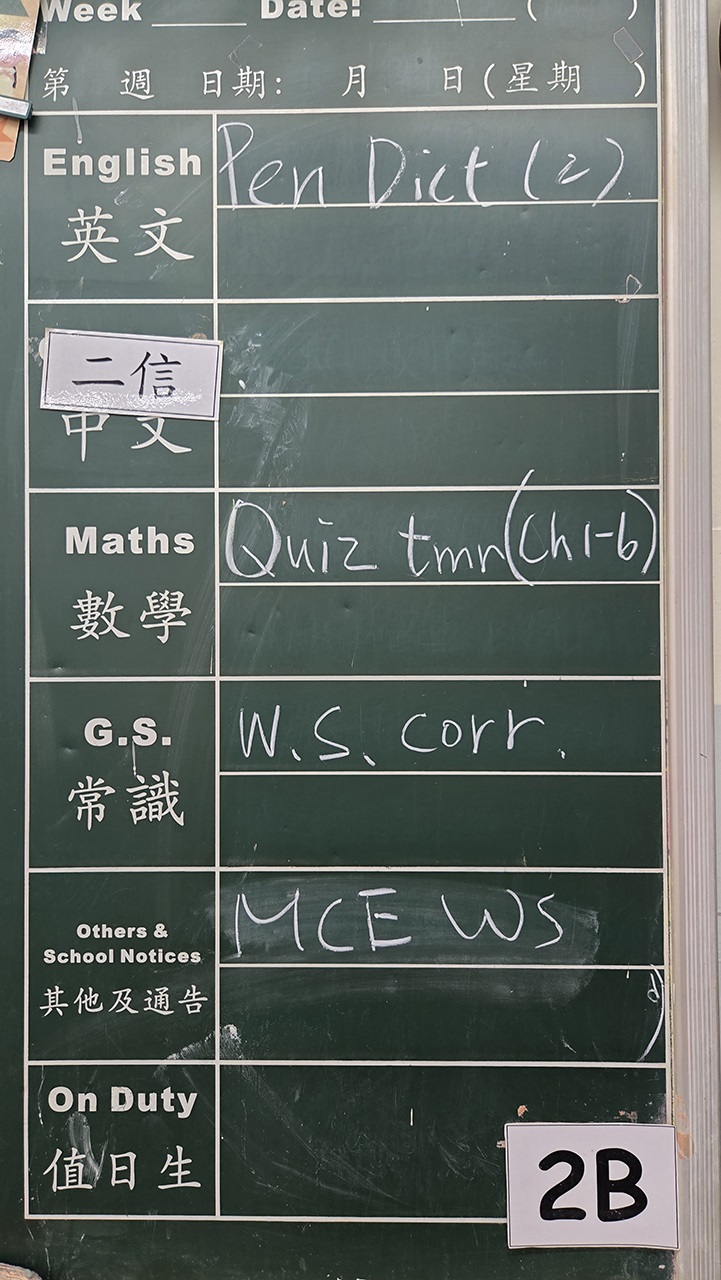 Week Date: ( )
第 週 日期: 月 日(星期 )
English Pen Dict (2)
英文
二信
中文
Maths Quiz tmr(Ch1-6)
數學
G.S. W.S. corr.
常識
Others & MCE WS
School Notices
其他及通告
On Duty
值日生
2B